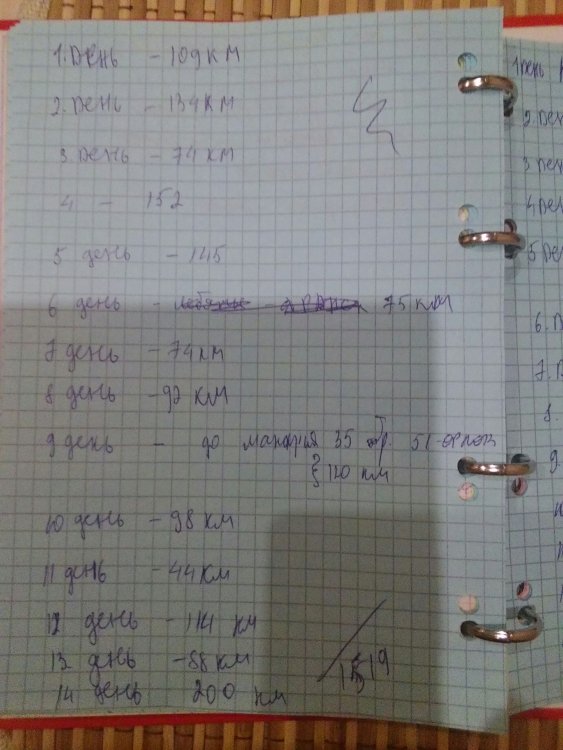 1. День - 109 КМ
2. День - 134 КМ
3 День - 74 КМ
4 - 152
5 день - 145
6 день - 75 км
7 день - 74 км
8 день - 92 км
9 день - до 35 51-
120 км
10 день - 98 км
11 день - 44 км
12 день - 114 км
13 день - 88 км
14 день 200 км
1 День
2. Ден
3 Ден
4 Де
5 Де
6. Д
7.
8.
9.